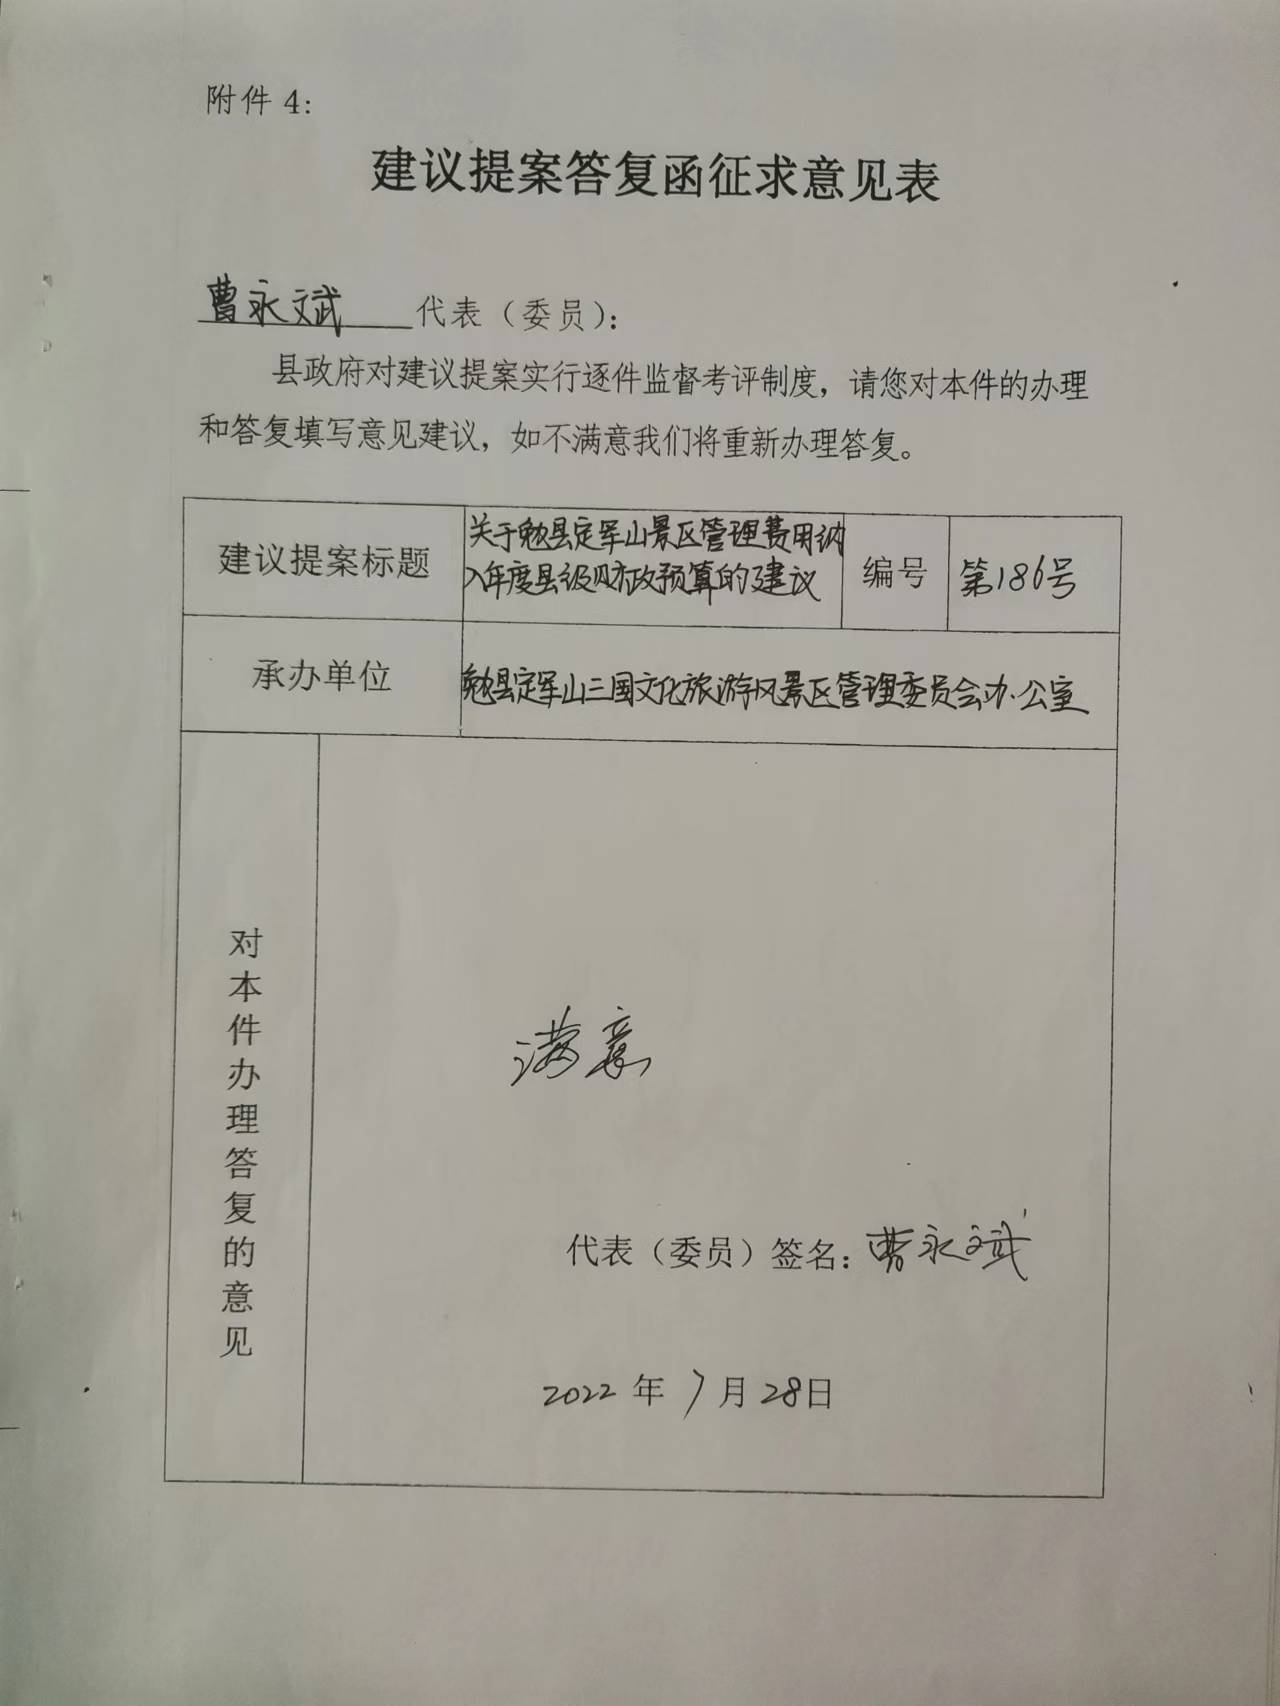 附件 4：
建议提案答复函征求意见表
曹永斌 代表（委员）：
县政府对建议提案实行逐件监督考评制度，请您对本件的办理
和答复填写意见建议，如不满意我们将重新办理答复。
建议提案标题
关于勉县定军山景区管理费用纳
入年度县级财政预算的建议
编号
第186号
承办单位
勉县定军山三国文化旅游风景区管理委员会办公室
对本件办理答复的意见
满意
代表（委员）签名：曹永斌
2022 年 7 月 28日